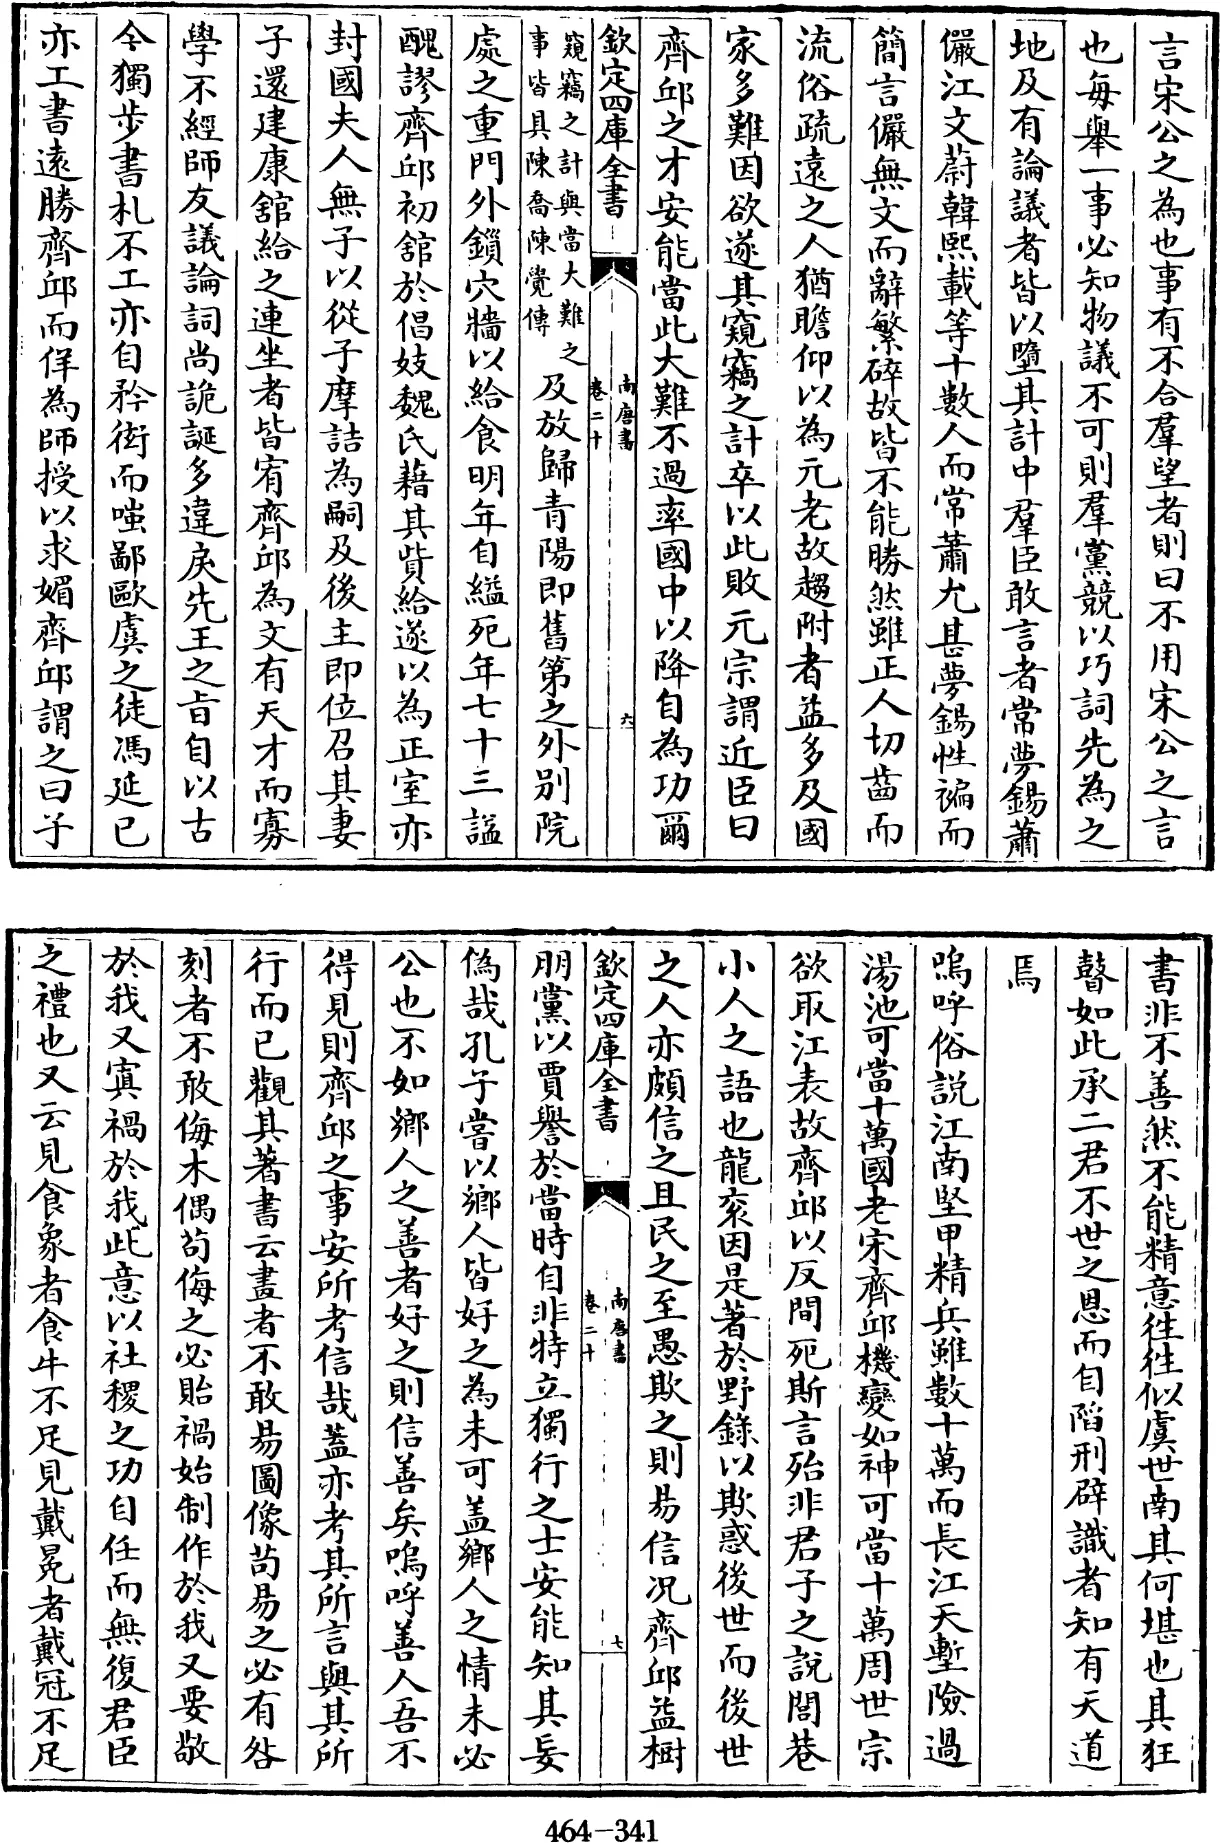 言宋公之為也事有不合羣望者則曰不用宋公之言
也每舉一事必知物議不可則羣黨競以巧詞先為之
地及有論議者皆以墮其計中羣臣敢言者常夢錫蕭
儼江文蔚韓熙載等十數人而常蕭尤甚夢錫性褊而
簡言儼無文而辭繁碎故皆不能勝然雖正人切齒而
流俗疏遠之人猶瞻仰以為元老故趨附者益多及國
家多難因欲遂其窺竊之計卒以此敗元宗謂近臣曰
齊邱之才安能當此大難不過率國中以降自為功爾
欽定四庫全書
南唐書
卷二十
六
窺竊之計與當大難之
事皆具陳喬陳覺傳
及放歸青陽即舊第之外別院
處之重門外鎖穴牆以給食明年自縊死年七十三諡
醜謬齊邱初舘於倡妓魏氏藉其貲給遂以為正室亦
封國夫人無子以從子摩詰為嗣及後主即位召其妻
子還建康舘給之連坐者皆宥齊邱為文有天才而寡
學不經師友議論詞尚詭誕多違戾先王之旨自以古
今獨步書札不工亦自矜衒而嗤鄙歐虞之徒馮延已
亦工書遠勝齊邱而佯為師授以求媚齊邱謂之曰子
書非不善然不能精意徃徃似虞世南其何堪也其狂
瞽如此承二君不世之恩而自陷刑辟識者知有天道
焉
嗚呼俗説江南堅甲精兵雖數十萬而長江天塹險過
湯池可當十萬國老宋齊邱機變如神可當十萬周世宗
欲取江表故齊邱以反間死斯言殆非君子之説閭巷
小人之語也龍衮因是著於野錄以欺惑後世而後世
之人亦頗信之且民之至愚欺之則易信况齊邱益樹
欽定四庫全書
南唐書
卷二十
七
朋黨以賈譽於當時自非特立獨行之士安能知其妄
偽哉孔子嘗以鄉人皆好之為未可盖鄉人之情未必
公也不如鄉人之善者好之則信善矣嗚呼善人吾不
得見則齊邱之事安所考信哉蓋亦考其所言與其所
行而已觀其著書云畫者不敢易圖像茍易之必有咎
刻者不敢侮木偶茍侮之必貽禍始制作於我又要敬
於我又寘禍於我此意以社稷之功自任而無復君臣
之禮也又云見食象者食牛不足見戴冕者戴冠不足
464-341